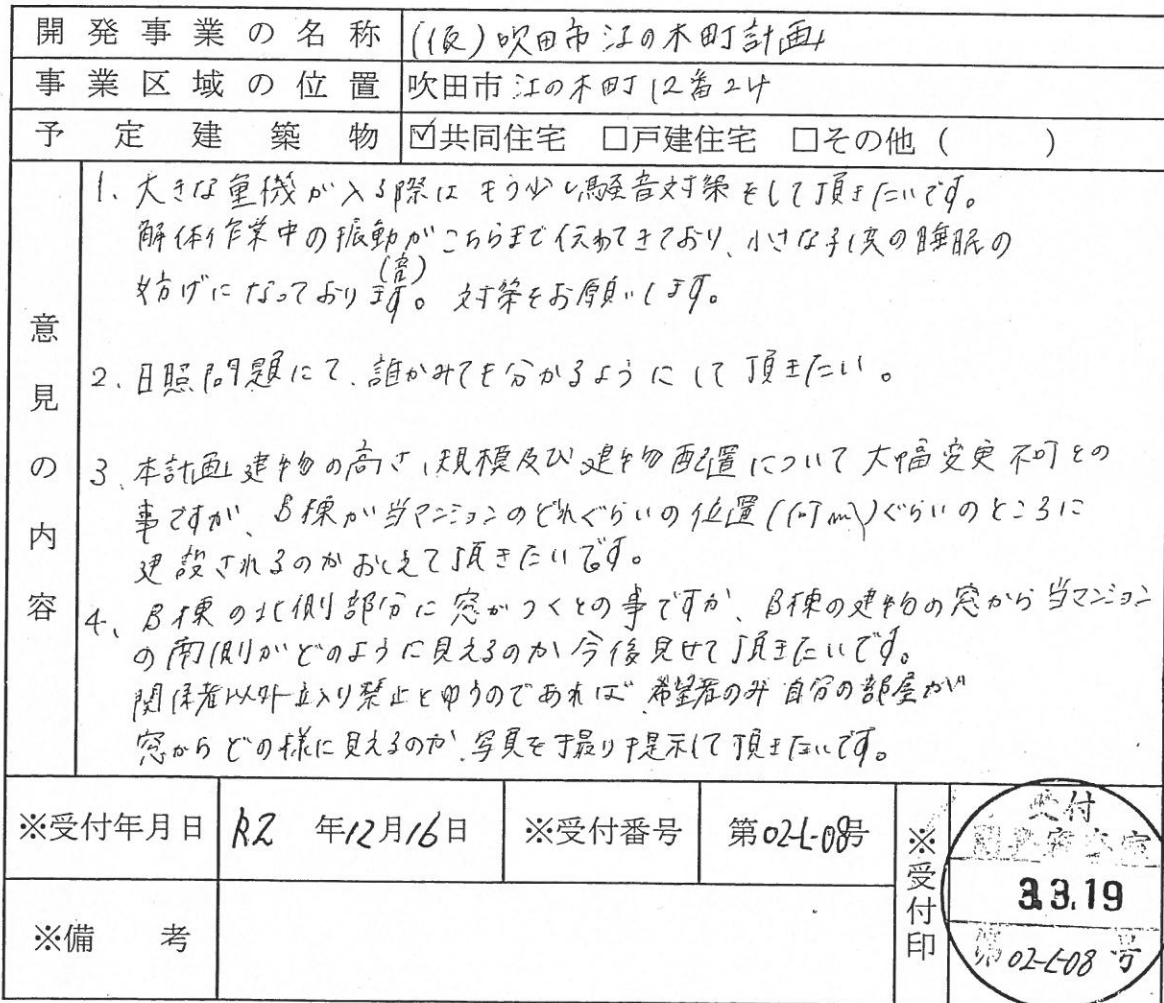 開発事業の名称 (仮)吹田市江の木町計画
事業区域の位置 吹田市江の木町12番24
予定建築物 ☑共同住宅 □戸建住宅 □その他（　　　）
意見の内容
1. 大きな重機が入る際はもう少し騒音対策をして頂きたいです。
解体作業中の振動がこちらまで伝わてきており、小さな子供の睡眠の
(音)
妨げになっております。対策をお願いします。
2. 日照問題にて、誰がみても分かるようにして頂きたい。
3. 本計画建物の高さ、規模及び建物配置について大幅変更不可との
事ですが、B棟が当マンションのどれぐらいの位置(何m)ぐらいのところに
建設されるのかおしえて頂きたいです。
4、B棟の北側部分に窓がつくとの事ですが、B棟の建物の窓から当マンション
の南側がどのように見えるのか今後見せて頂きたいです。
関係者以外立入り禁止とゆうのであれば、希望者のみ自分の部屋が
窓からどの様に見えるのか、写真を撮り提示して頂きたいです。
※受付年月日 R2 年12月16日 ※受付番号 第02-L-08号
※受付印
受付
3.3.19
第02-L-08号
※備考